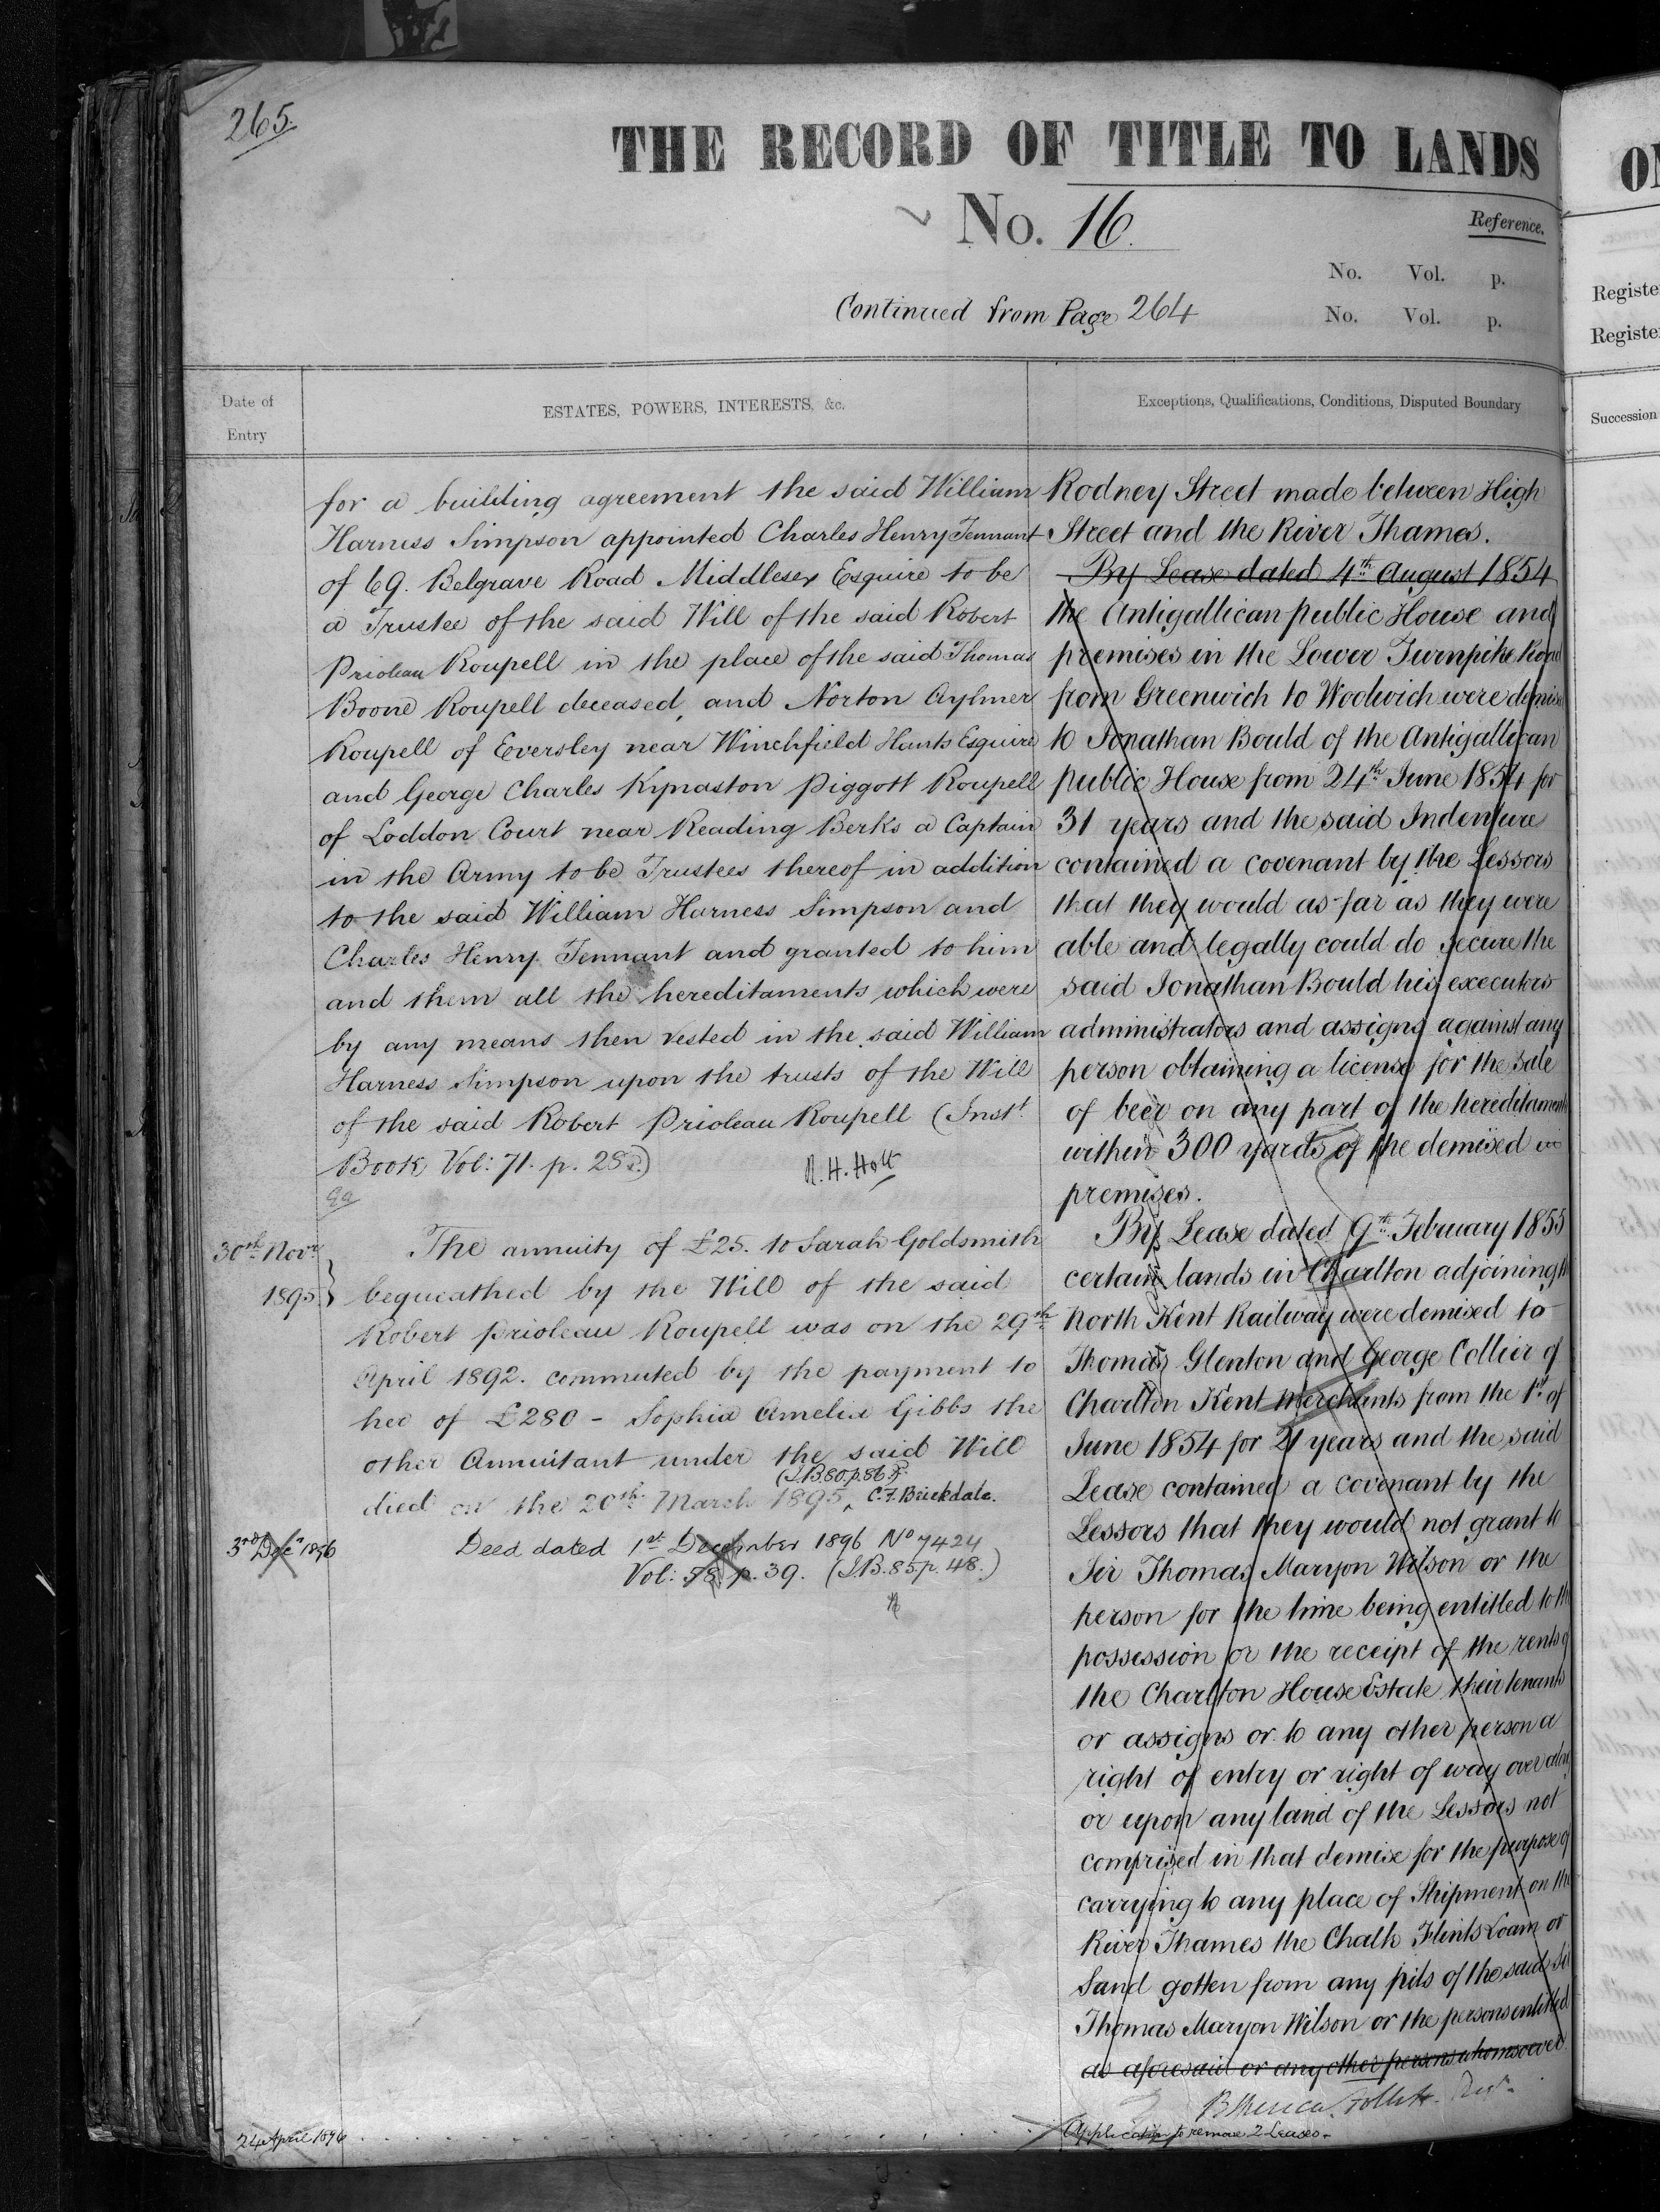 265.
THE RECORD OF TITLE TO LANDS
No. 16.
Reference.
No. Vol. p.
No. Vol. p.
Continued from Page 264
Date of
Entry
ESTATES, POWERS, INTERESTS, &c.
Exceptions, Qualifications, Conditions, Disputed Boundary
for a building agreement the said William
Harness Simpson appointed Charles Henry Tennant
of 69. Belgrave Road Middlesex Esquire to be
a Trustee of the said Will of the said Robert
Prioleau Roupell in the place of the said Thomas
Boone Roupell deceased, and Norton Aylmer
Roupell of Eversley near Winchfield Hants Esquire
and George Charles Kynaston Piggott Roupell
of Loddon Court near Reading Berks a Captain
in the Army to be Trustees thereof in addition
to the said William Harness Simpson and
Charles Henry Tennant and granted to him
and them all the hereditaments which were
by any means then vested in the said William
Harness Simpson upon the trusts of the Will
of the said Robert Prioleau Roupell (Inst.
Book Vol: 71. p. 28
R. H. Holt
30th Novr.
1895
The annuity of £25. to Sarah Goldsmith
bequeathed by the Will of the said
Robert Prioleau Roupell was on the 29th
April 1892. commuted by the payment to
her of £280 - Sophia Amelia Gibbs the
other Annuitant under the said Will
(I.B.80.p.86
died on the 20th March 1895, C.F. Brickdale.
3rd Decr 1896
Deed dated 1st December 1896 No 7424
Vol: 58 p. 39. (I.B. 85 p. 48.)
Rodney Street made between High
Street and the River Thames.
By Lease dated 4th August 1854
the Antigallican public House and
premises in the Lower Turnpike Road
from Greenwich to Woolwich were demised
to Jonathan Bould of the Antigallican
public House from 24th June 1854 for
31 years and the said Indenture
contained a covenant by the Lessors
that they would as far as they were
able and legally could do secure the
said Jonathan Bould his executors
administrators and assigns against any
person obtaining a license for the sale
of beer on any part of the hereditaments
within 300 yards of the demised
premises.
By Lease dated 9th February 1855
certain lands in Charlton adjoining the
North Kent Railway were demised to
Thomas Glenton and George Collier of
Charlton Kent Merchants from the 1st of
June 1854 for 21 years and the said
Lease contained a covenant by the
Lessors that they would not grant to
Sir Thomas Maryon Wilson or the
person for the time being entitled to the
possession or the receipt of the rents of
the Charlton House Estate their tenants
or assigns or to any other person a
right of entry or right of way over along
or upon any land of the Lessors not
comprised in that demise for the purpose of
carrying to any place of Shipment on the
River Thames the Chalk Flints Loam or
Sand gotten from any pits of the said Sir
Thomas Maryon Wilson or the persons entitled
as aforesaid or any other persons whomsoever.
24 April 1896
Application to remove 2 Leases.